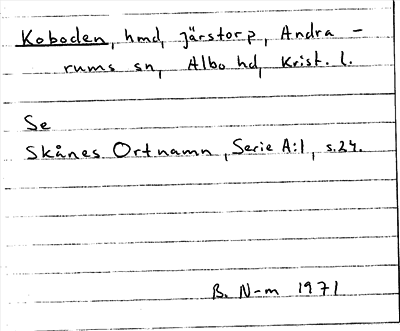 Koboden, hmd, Järstorp, Andra-
rums sn, Albo hd, Krist. l.
Se
Skånes Ortnamn, Serie A:1, s.24.
B. N-m 1971